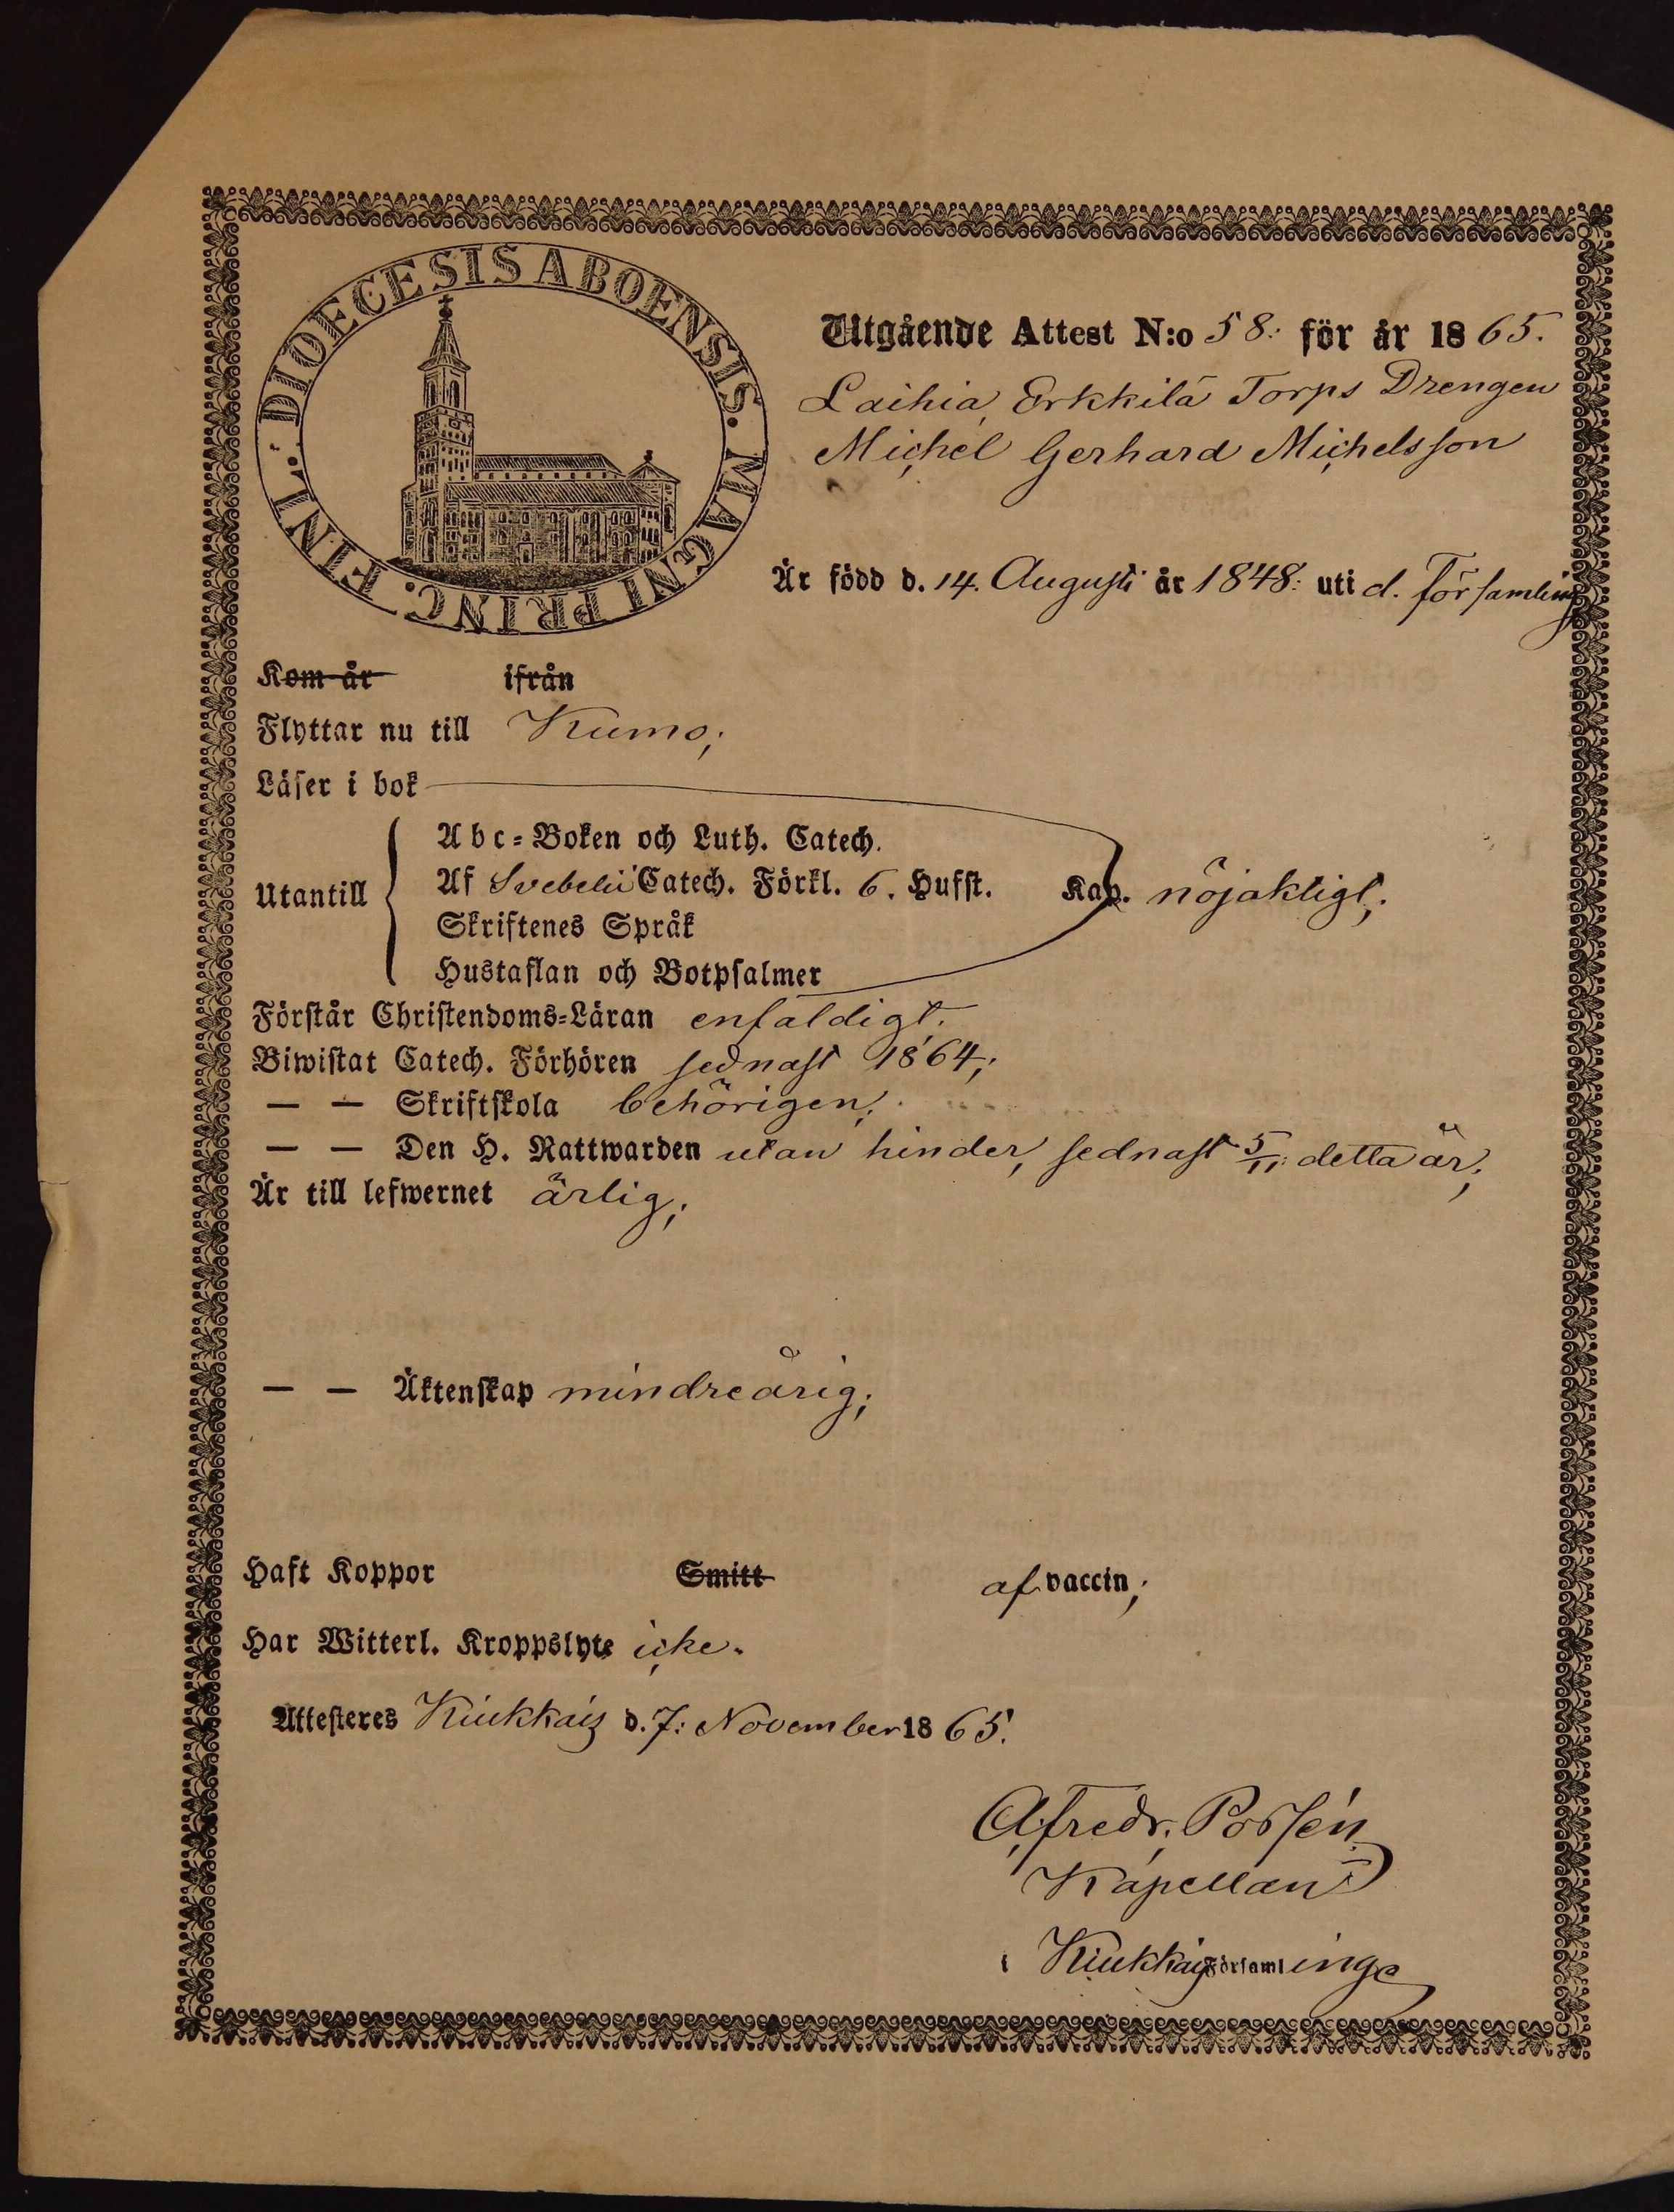 DIOECESIS ABOENSIS. MAGNI PRINC. FINL.
Utgående Attest N:o 58: för år 1865.
Laihia Erkkilä Torps Drengen
Michel Gerhard Michelsson
Är född d. 14. Augusti år 1848: uti d. församling
Kom år ifrån
Flyttar nu till Kumo;
Läser i bok
Abc-Boken och Luth. Catech.
Utantill Af Svebelii Catech. Förkl. 6. Hufst. Kap. nöjaktigt;
Skriftenes Språk
Hustaflan och Botpsalmer
Förstår Christendoms-Läran enfaldigt.
Biwistat Catech. Förhören sednast 1864;
— — Skriftskola behörigen;
— — Den H. Nattwarden utan hinder, sednast 5/11: detta år;
Är till lefwernet ärlig;
— — Äktenskap mindreårig;
Haft Koppor Smitt af vaccin;
Har Witterl. Kroppslyte icke.
Attesteres Kiukkais d. 7: November 1865.
A. Fredr. Possén
Kapellan
i Kiukkais Församlinge